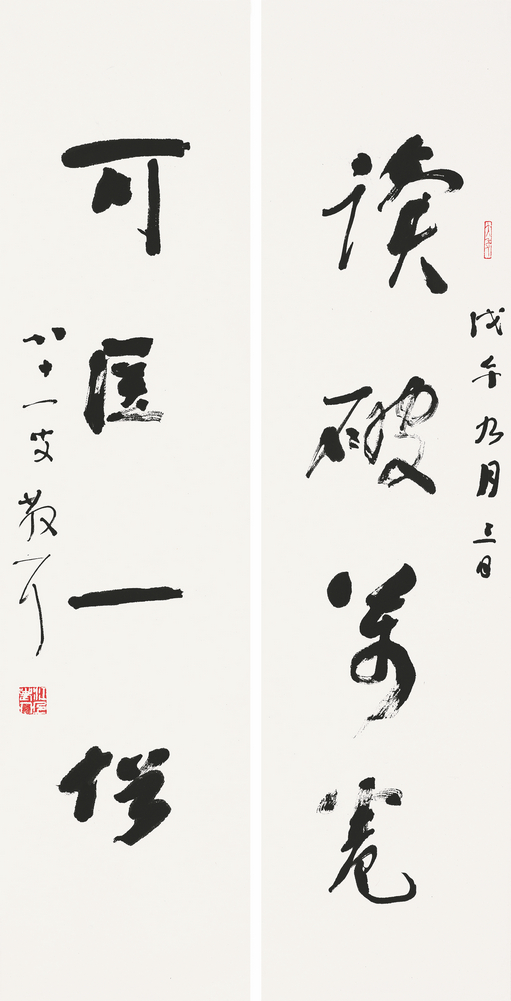 戊午九月三日
读破万卷
可医一俗
八十一叟散之